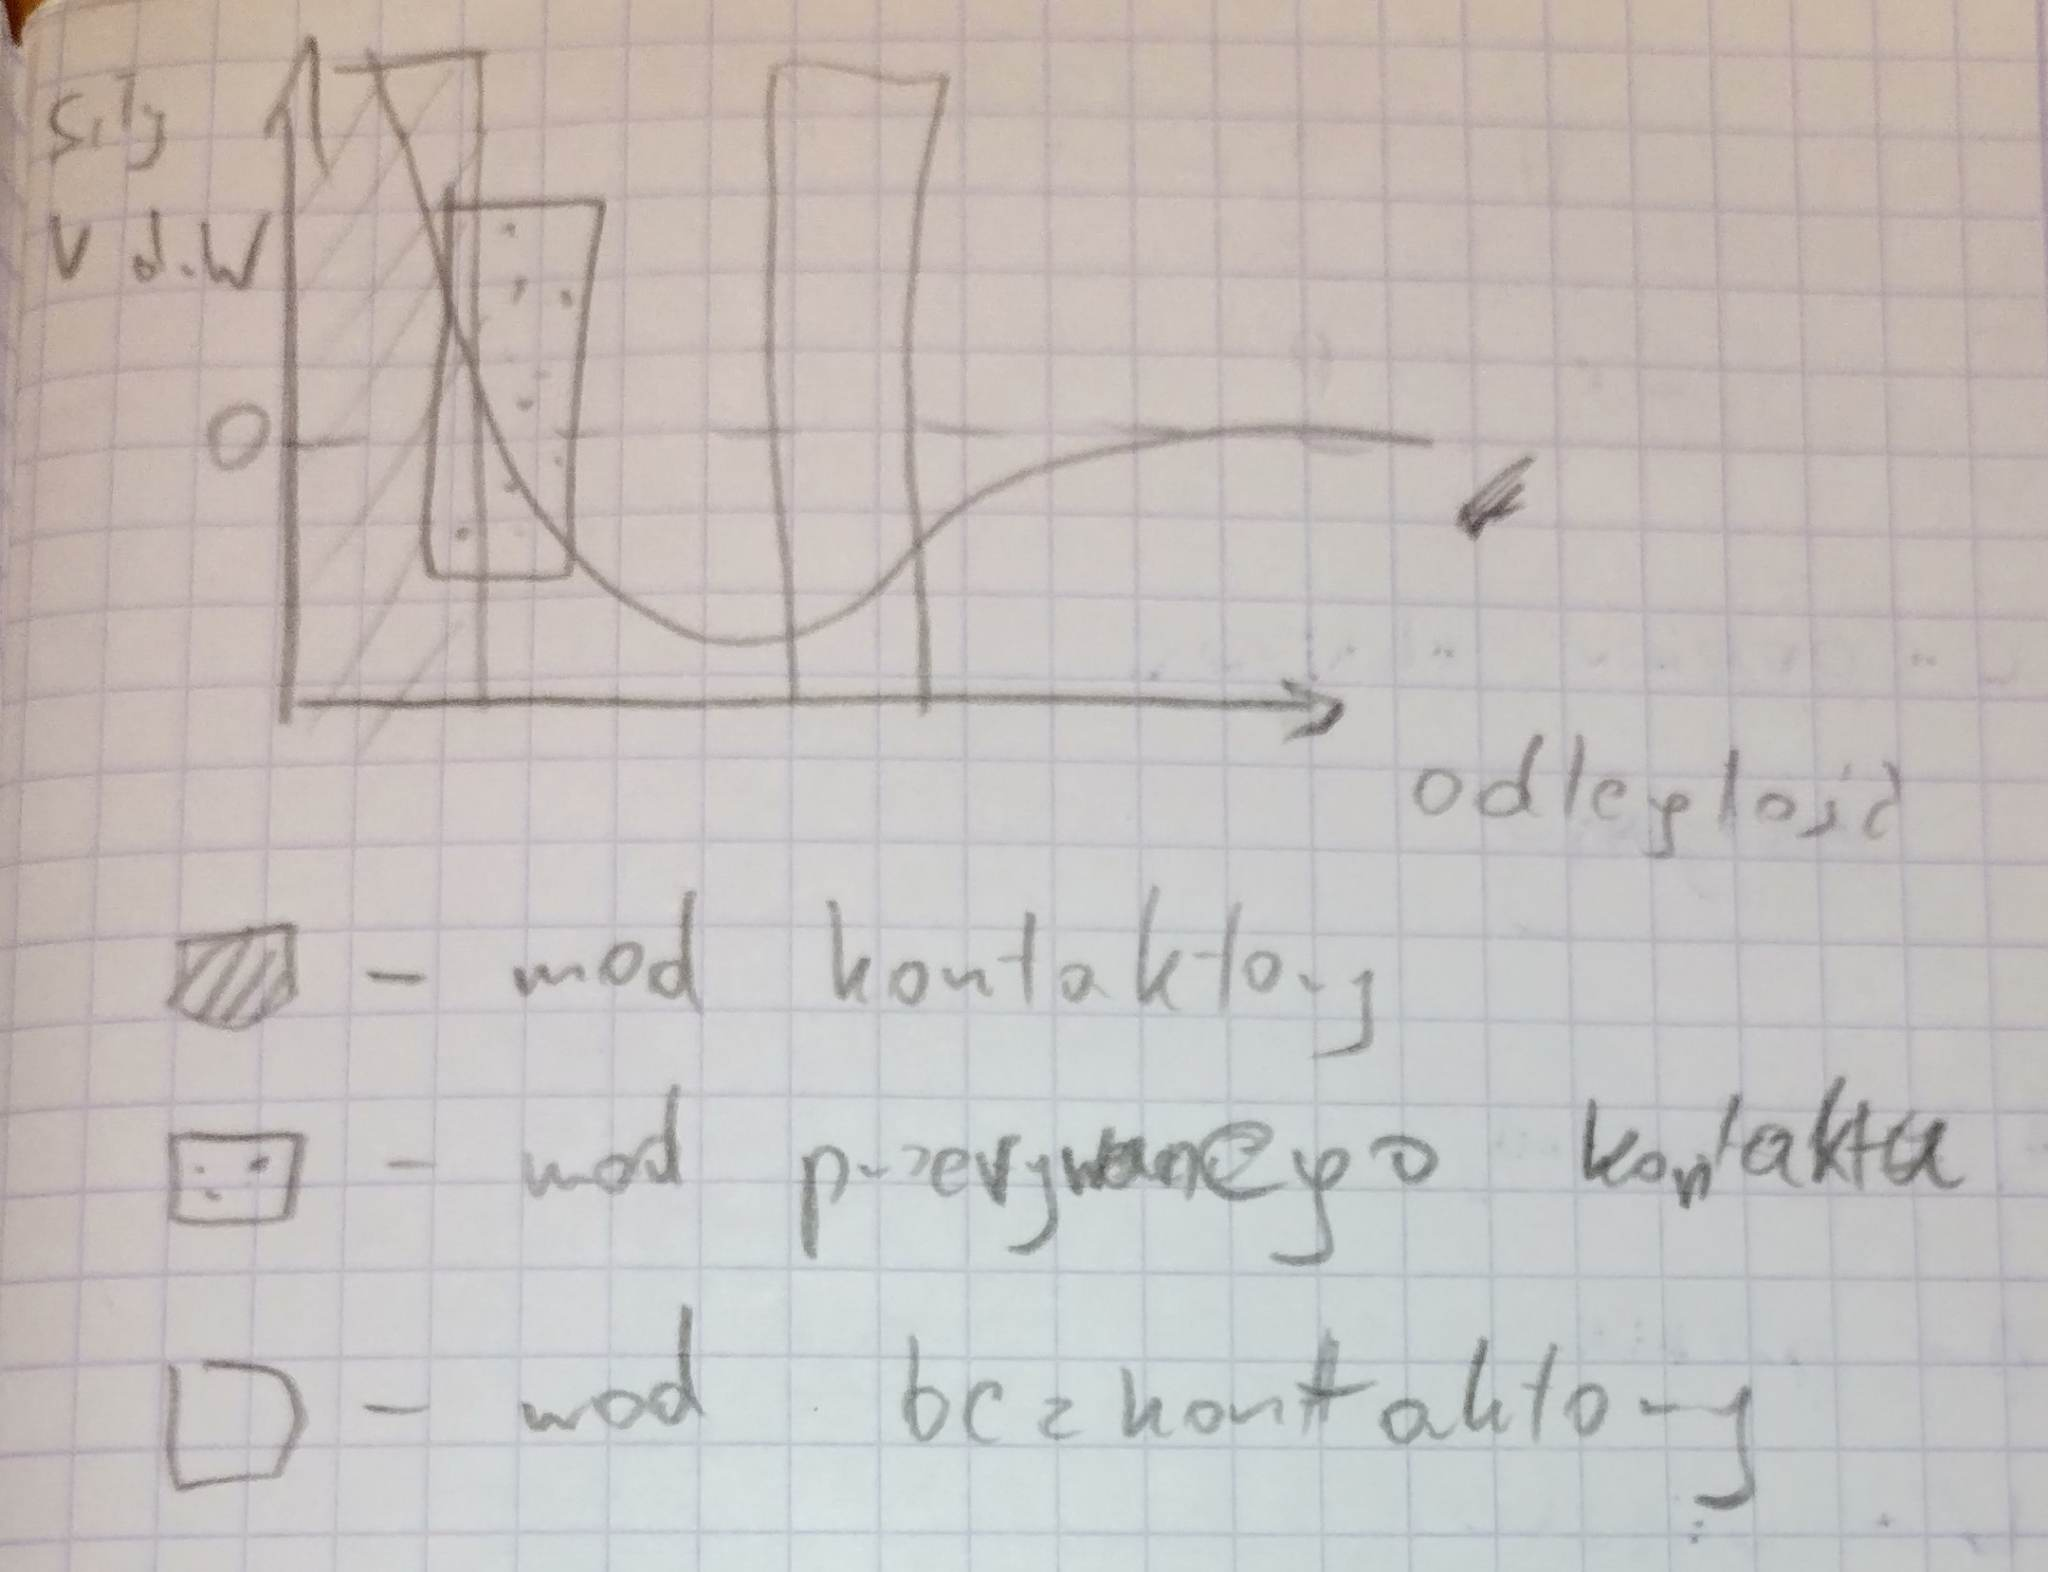 Siły
V d.W
0
odległość
- mod kontaktowy
- mod przerywanego kontaktu
- mod bezkontaktowy